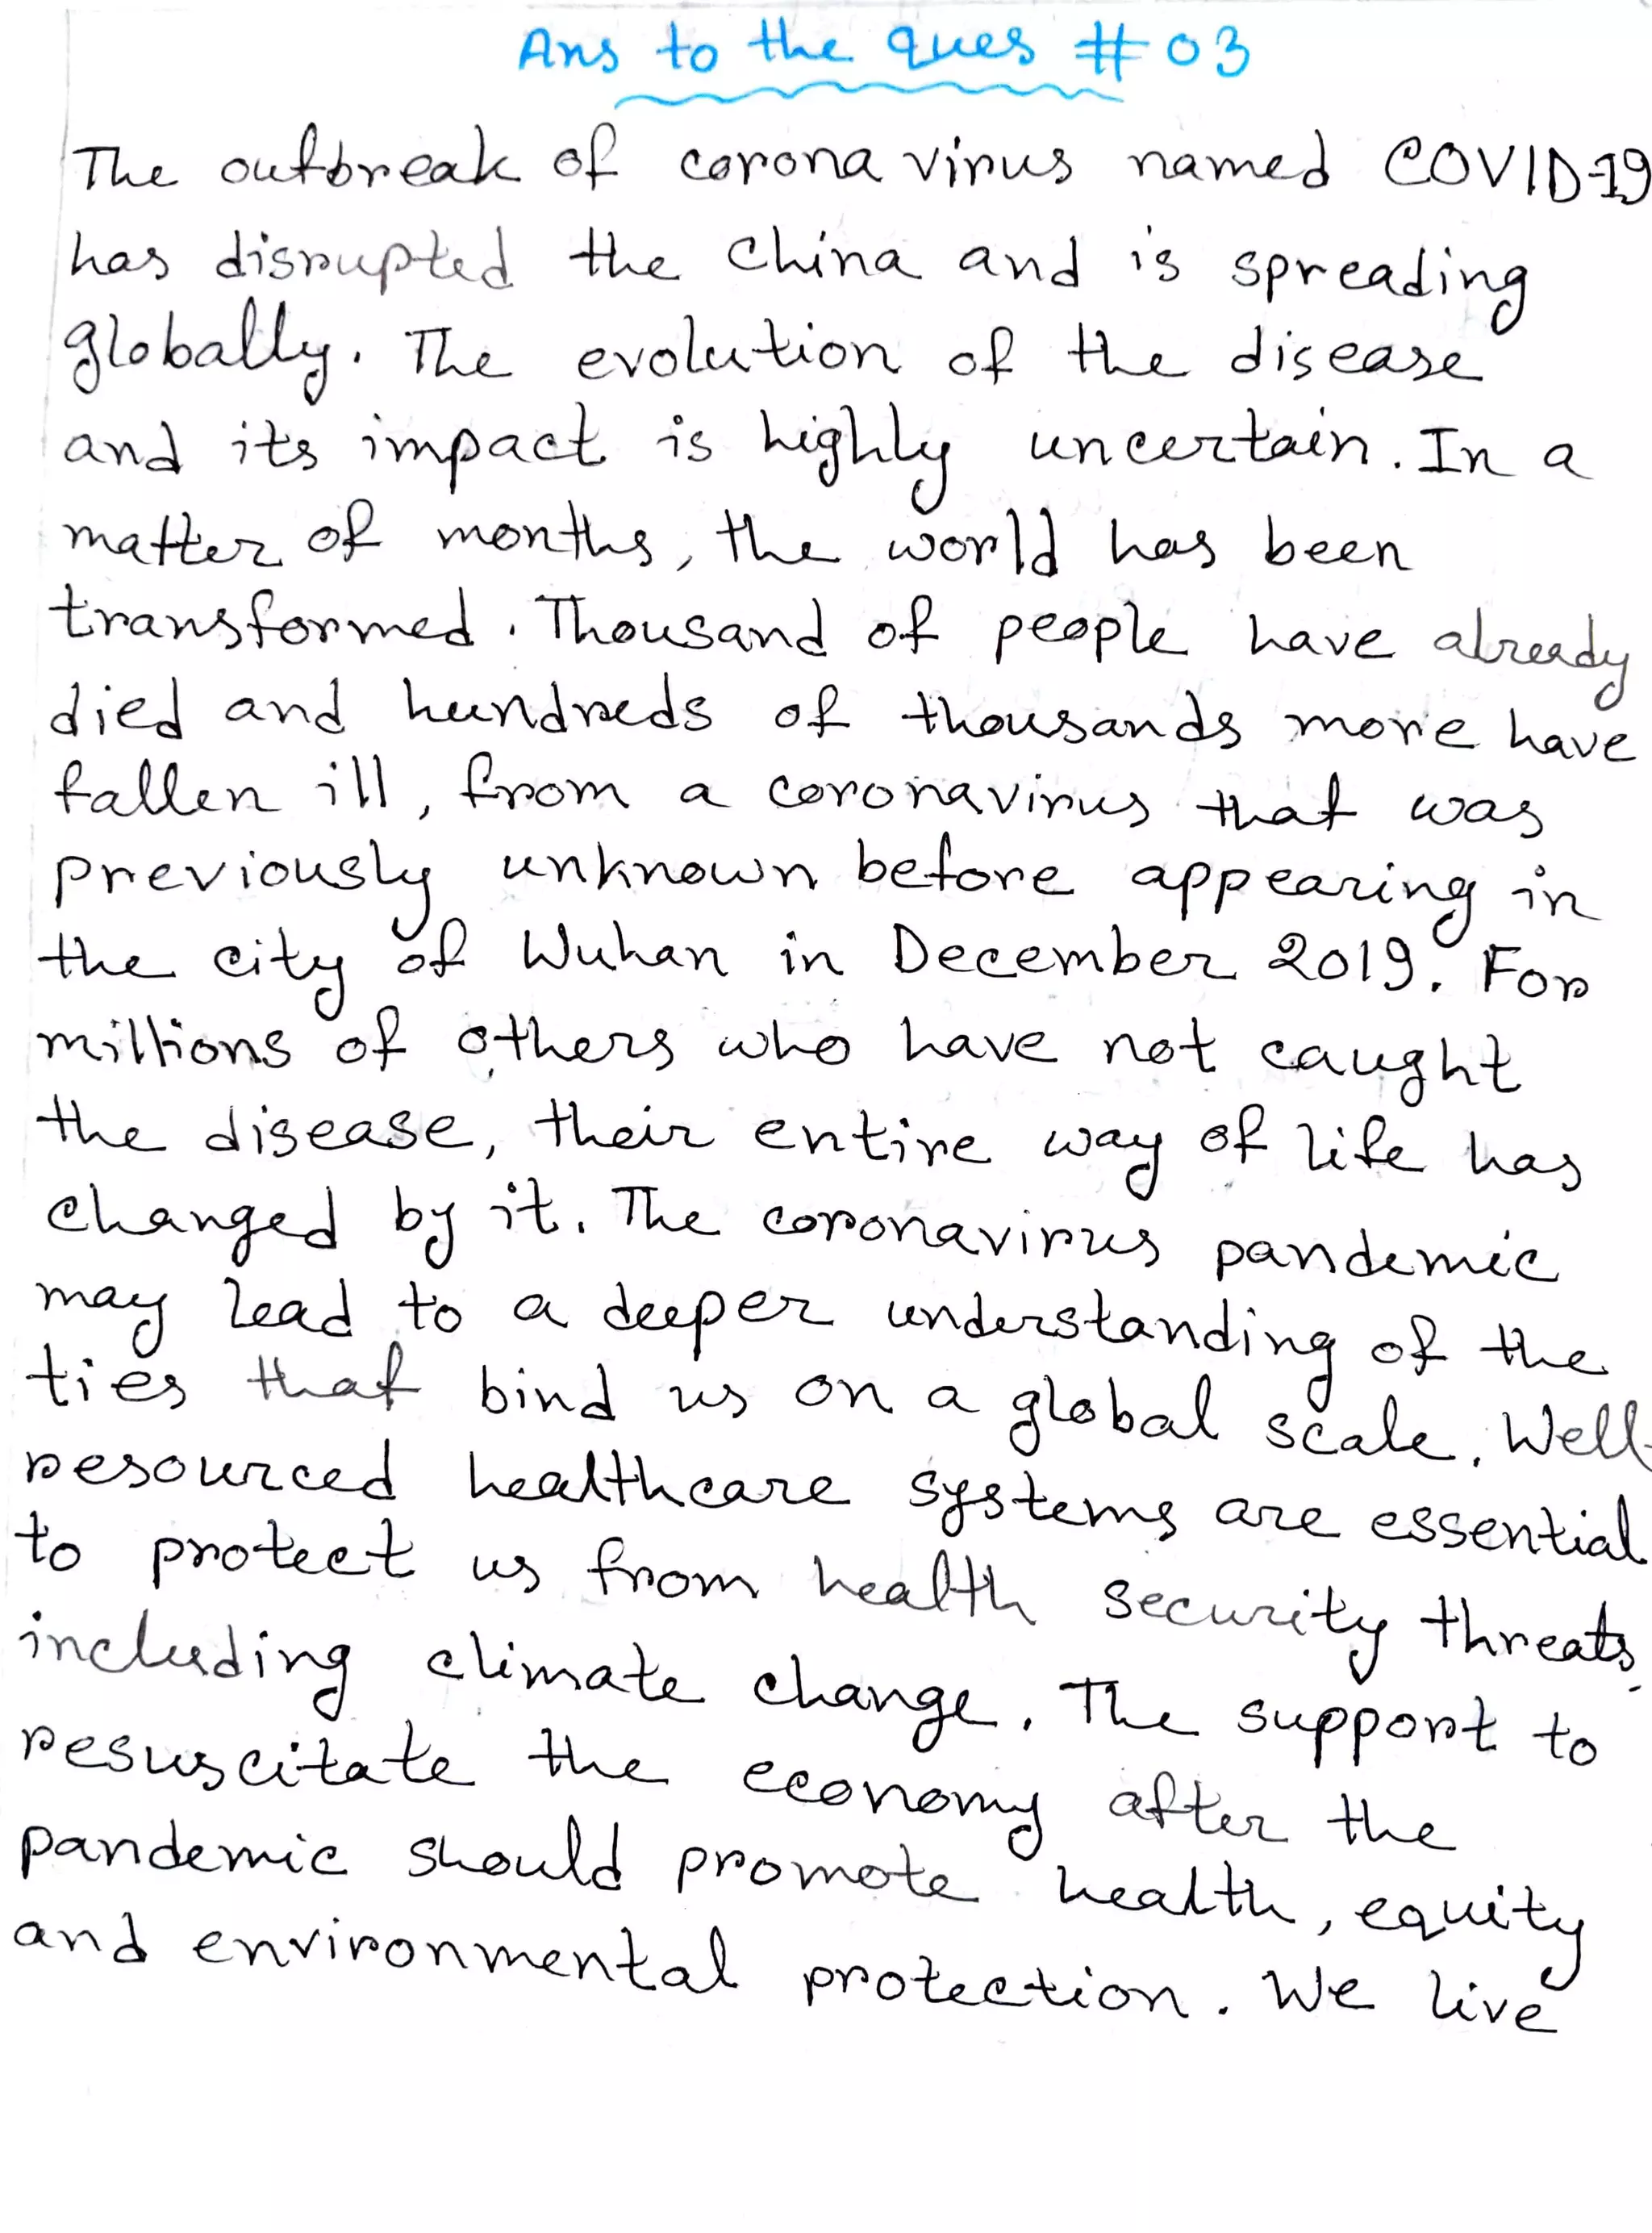 Ans to the ques # 03
The outbreak of corona virus named COVID-19
has disrupted the China and is spreading
globally. The evolution of the disease
and its impact is highly uncertain. In a
matter of months, the world has been
transformed. Thousand of people have already
died and hundreds of thousands more have
fallen ill, from a coronavirus that was
previously unknown before appearing in
the city of Wuhan in December 2019. For
millions of others who have not caught
the disease, their entire way of life has
changed by it. The coronavirus pandemic
may lead to a deeper understanding of the
ties that bind us on a global scale. Well-
resourced healthcare systems are essential
to protect us from health security threats,
including climate change. The support to
resuscitate the economy after the
pandemic should promote health, equity
and environmental protection. We live